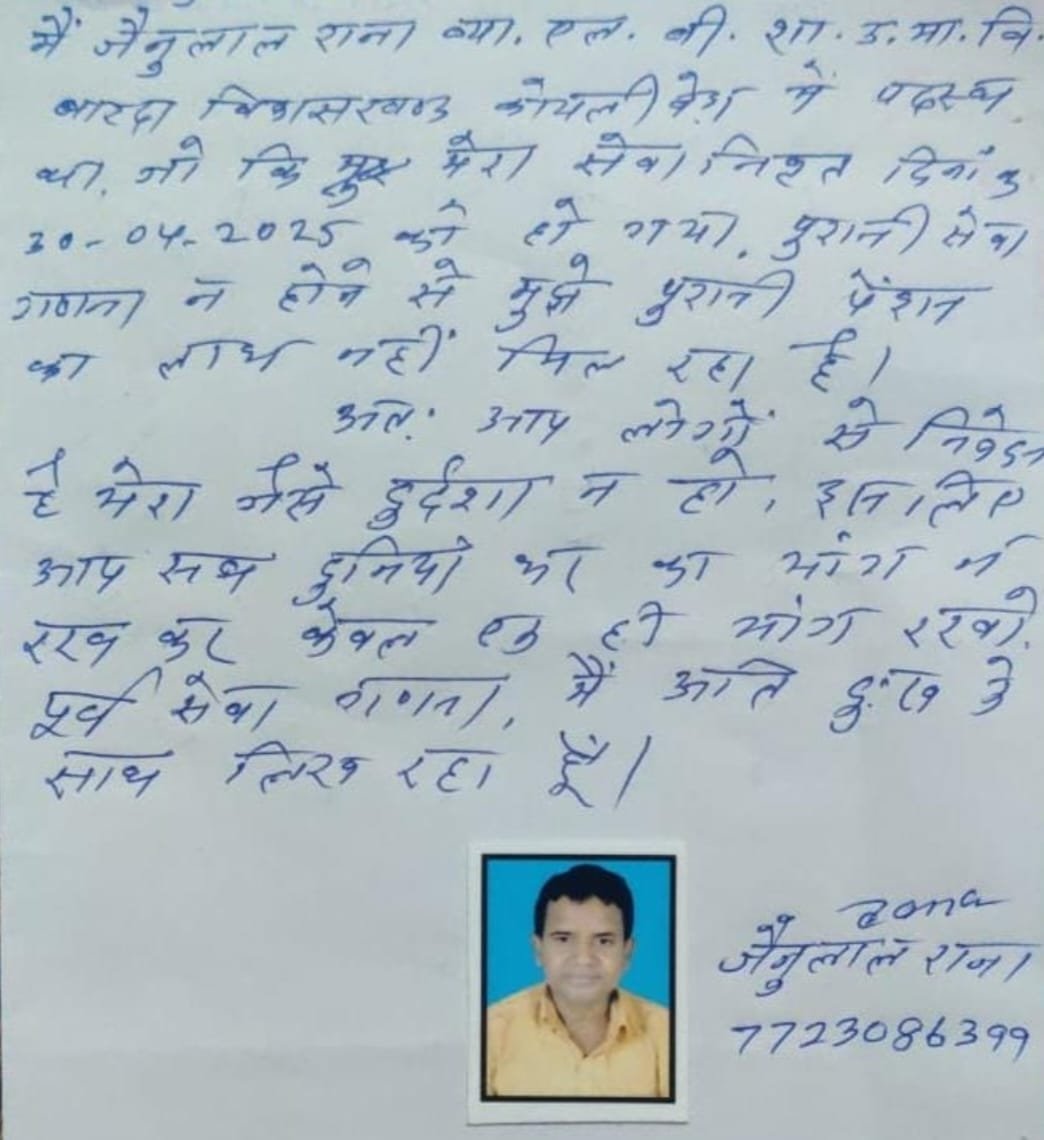 मैं जैनुलाल राना व्या. एल. बी. शा. उ. मा. वि.
बारदा विकासखण्ड कोयलीबेड़ा में पदस्थ
था. जो कि मेरा सेवा निवृत दिनांक
30-04-2025 को हो गया. पुरानी सेवा
गणना न होने से मुझे पुरानी पेंशन
का लाभ नहीं मिल रहा है।
अतः आप लोगों से निवेदन
है मेरा जैसे दुर्दशा न हो, इसलिए
आप सब दुनिया भर का मांग न
रख कर केवल एक ही मांग रखो.
पूर्व सेवा गणना, मैं अति दुःख के
साथ लिख रहा हूँ।
जैनुलाल राना
7723086399